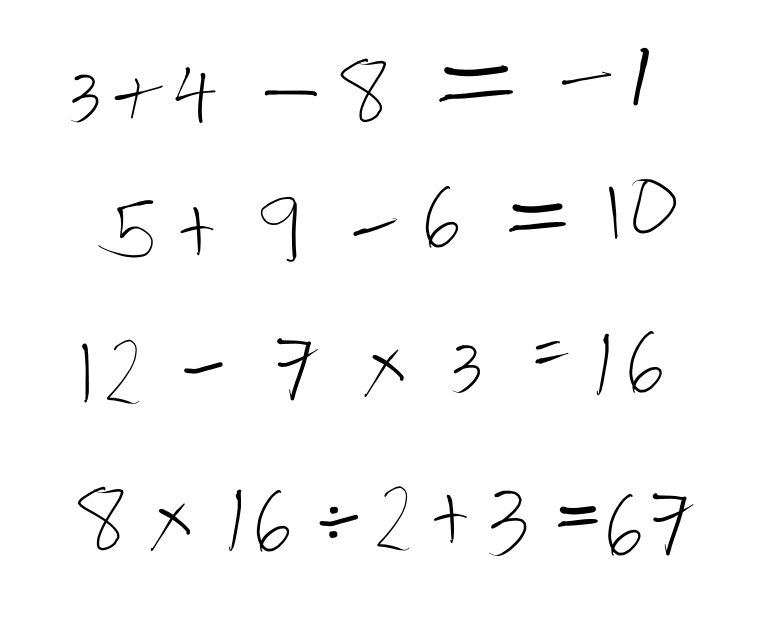 3+4 - 8 = -1
5 + 9 - 6 = 10
12 - 7 × 3 = 16
8 × 16 ÷ 2 + 3 = 67